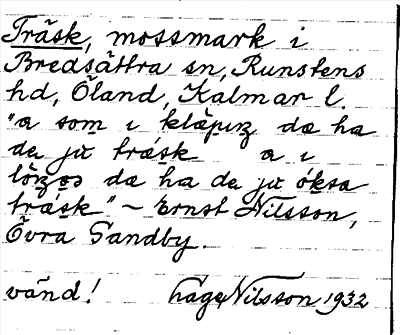 Träsk, mossmark i
Bredsättra sn, Runstens
hd, Öland, Kalmar l.
"a som i kläpıŋ dæ ha
de jit träsk a i
dæ ha de jit öksa
träsk" ~ Ernst Nilsson,
Övra Sandby.
vänd! Hage Nilsson 1932